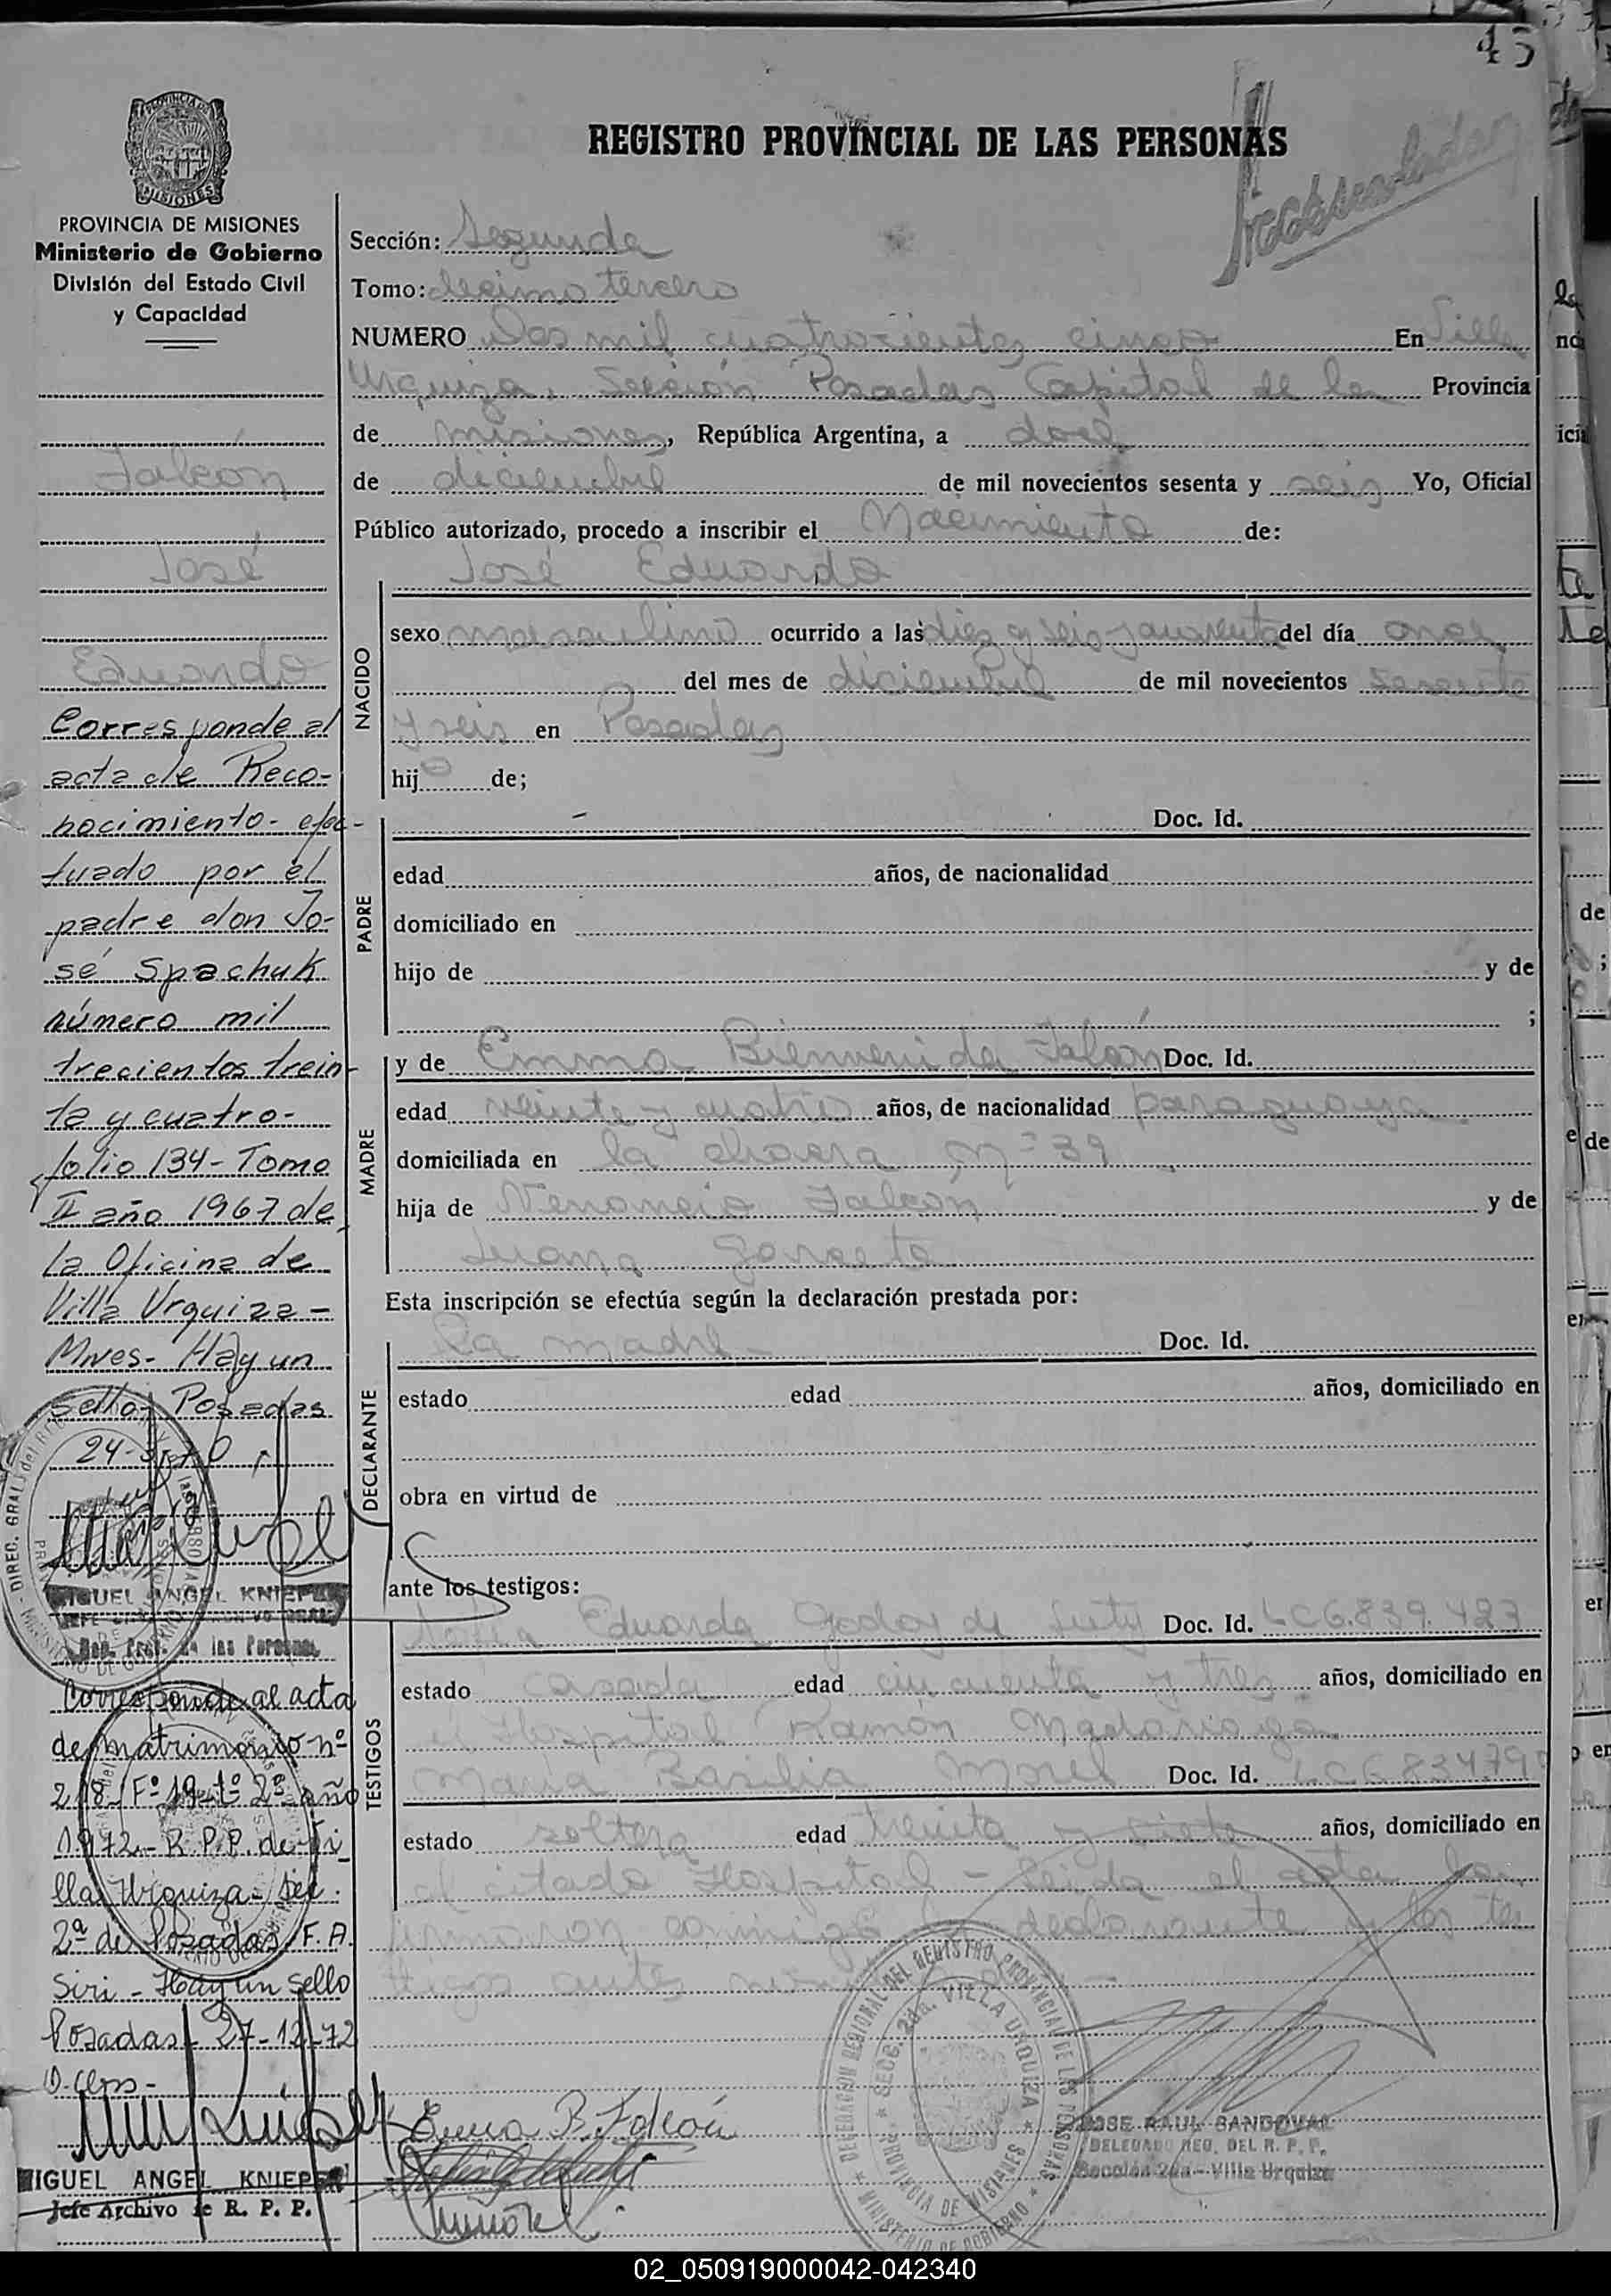 45
PROVINCIA DE MISIONES
REGISTRO PROVINCIAL DE LAS PERSONAS
PROVINCIA DE MISIONES
Ministerio de Gobierno
División del Estado Civil
y Capacidad
Falcón
José
Eduardo
Corresponde al
acta de Reco-
nocimiento- efec-
tuado por el
padre don Jo-
sé Spachuk
número mil
trecientos trein-
ta y cuatro-
folio 134- Tomo
II año 1967 de
La Oficina de
Villa Urquiza-
Mnes- Hay un
Sello, Posadas
MIGUEL ANGEL KNIEPER
Corresponde al acta
de matrimonio nº
218- Fº 19- tº 2º año
1972- R.P.P. de Vi
lla Urquiza- Sec.
2ª de Posadas F. A.
Siri- Hay un sello
Posadas- 27-12-72
MIGUEL ANGEL KNIEPER
Jefe Archivo de R. P. P.
Sección: Segunda
Tomo: decimo tercero
NUMERO Dos mil cuatrocientos cinco En Villa
Urquiza, Sección Posadas Capital de la Provincia
de Misiones, República Argentina, a doce
de diciembre de mil novecientos sesenta y seis Yo, Oficial
Público autorizado, procedo a inscribir el Nacimiento de:
José Eduardo
NACIDO
sexo masculino ocurrido a las diez y seis y cuarenta del día once
del mes de diciembre de mil novecientos sesenta
y seis en Posadas
hijo de;
PADRE
- Doc. Id.
edad años, de nacionalidad
domiciliado en
hijo de y de
;
MADRE
y de Emma Bienvenida Falcón Doc. Id.
edad veinte y cuatro años, de nacionalidad paraguaya
domiciliada en la chacra Nº 39
hija de Venancio Falcón y de
Juana
Esta inscripción se efectúa según la declaración prestada por:
DECLARANTE
la madre- Doc. Id.
estado edad años, domiciliado en
obra en virtud de
ante los testigos:
TESTIGOS
Eduarda Godoy de Doc. Id. LC 6.839.423
estado casada edad cincuenta y tres años, domiciliado en
el Hospital Ramón Madariaga
María Basilia Morel Doc. Id. LC 683479
estado soltera edad treinta y siete años, domiciliado en
el citado Hospital - Leida el acta la
firmaron conmigo la declarante y los tes
tigos antes
Emma B. Falcón
DELEGACION REGIONAL DEL REGISTRO PROVINCIAL DE LAS PERSONAS
SECC. 2da. VILLA URQUIZA
PROVINCIA DE MISIONES
MINISTERIO DE GOBIERNO
JOSE RAUL SANDOVAL
DELEGADO REG. DEL R. P. P.
Sección 2da - Villa Urquiza
02_050919000042-042340